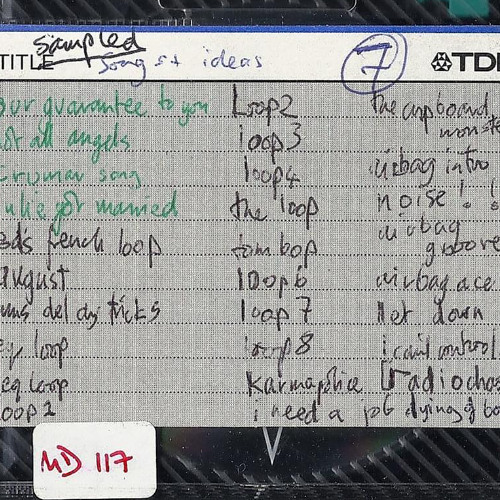 sampled
TITLE song st ideas 7 TDK
our guarantee to you
ot all angels
truman song
ulie got married
ed's french loop
august
ms delay tricks
loop
eq loop
oop 1
Loop2
loop3
loop4
the loop
tom bop
loop6
loop7
loop8
karmapolice
i need a job
the cupboard
monste
airbag intro
noise!!
airbag
groove
airbag ace
let down
i cant control
[radiochea
dying of bo
MD 117